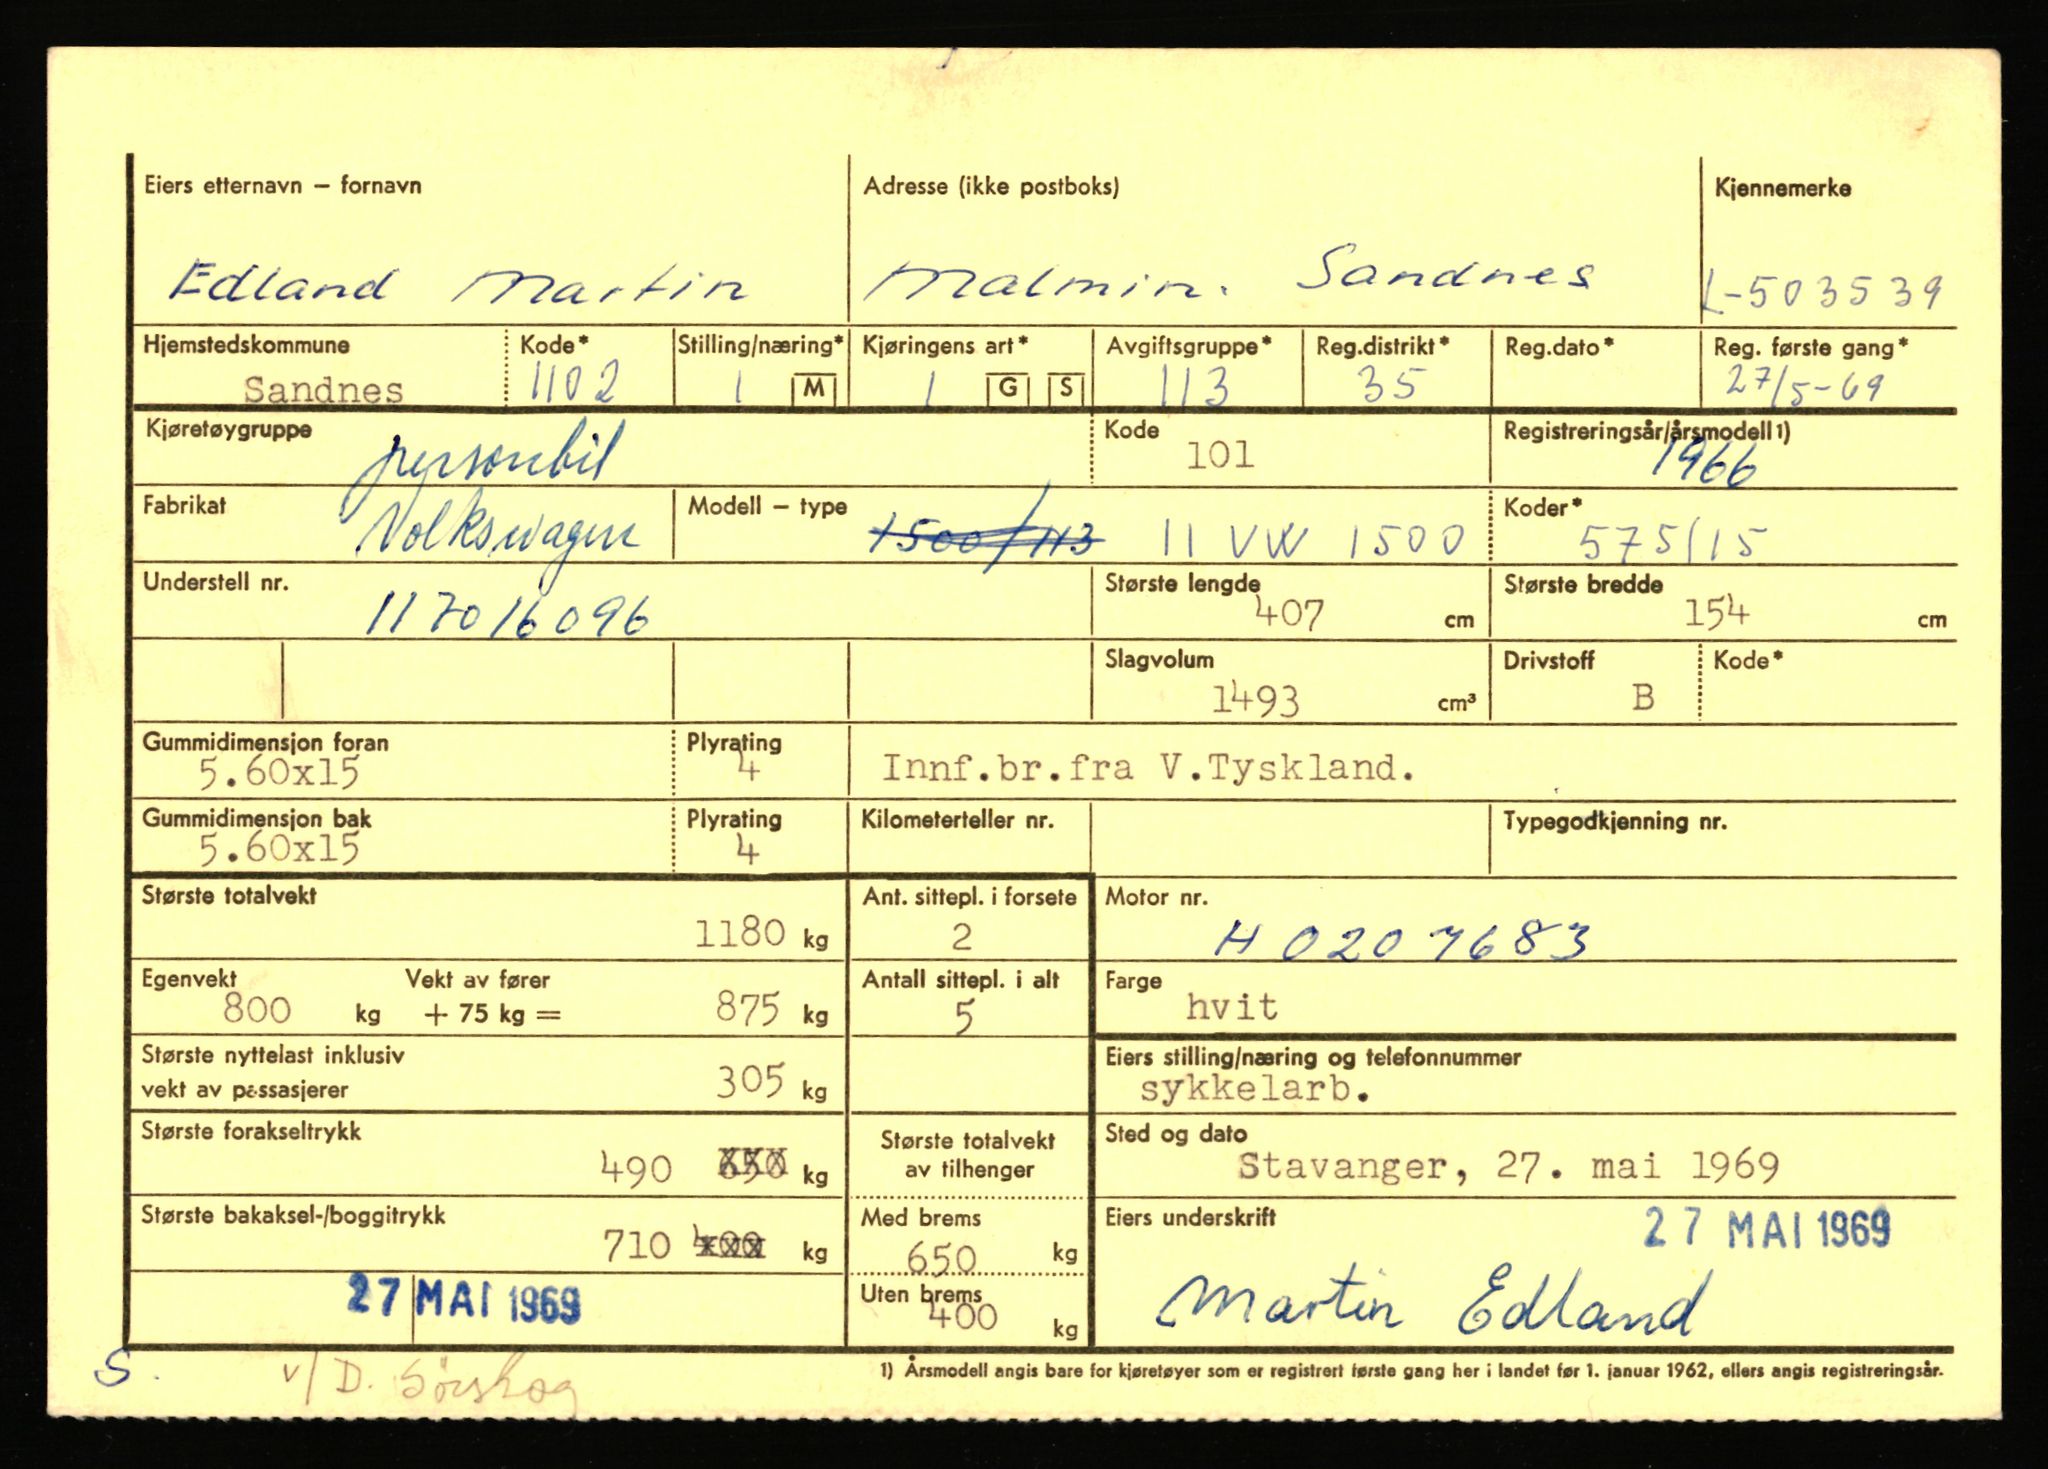 Eiers etternavn – fornavn Adresse (ikke postboks) Kjennemerke
Edland Martin Malmin. Sandnes L-503539
Hjemstedskommune Kode* Stilling/næring* Kjøringens art* Avgiftsgruppe* Reg.distrikt* Reg.dato* Reg. første gang*
Sandnes 1102 1 M 1 G S 113 35 27/5-69
Kjøretøygruppe Kode Registreringsår/årsmodell 1)
personbil 101 1966
Fabrikat Modell – type Koder*
Volkswagen 1500/113 11 VW 1500 575/15
Understell nr. Største lengde Største bredde
117016096 407 cm 154 cm
Slagvolum Drivstoff Kode*
1493 cm³ B
Gummidimensjon foran Plyrating
5.60x15 4 Innf.br.fra V.Tyskland.
Gummidimensjon bak Plyrating Kilometerteller nr. Typegodkjenning nr.
5.60x15 4
Største totalvekt Ant. sittepl. i forsete Motor nr.
1180 kg 2 H0207683
Egenvekt Vekt av fører Antall sittepl. i alt Farge
800 kg + 75 kg = 875 kg 5 hvit
Største nyttelast inklusiv Eiers stilling/næring og telefonnummer
vekt av passasjerer 305 kg sykkelarb.
Største forakseltrykk Største totalvekt Sted og dato
490 650 kg av tilhenger Stavanger, 27. mai 1969
Største bakaksel-/boggitrykk Med brems Eiers underskrift 27 MAI 1969
710 400 kg 650 kg
27 MAI 1969 Uten brems Martin Edland
400 kg
S. v/ D. Sörskog 1) Årsmodell angis bare for kjøretøyer som er registrert første gang her i landet før 1. januar 1962, ellers angis registreringsår.